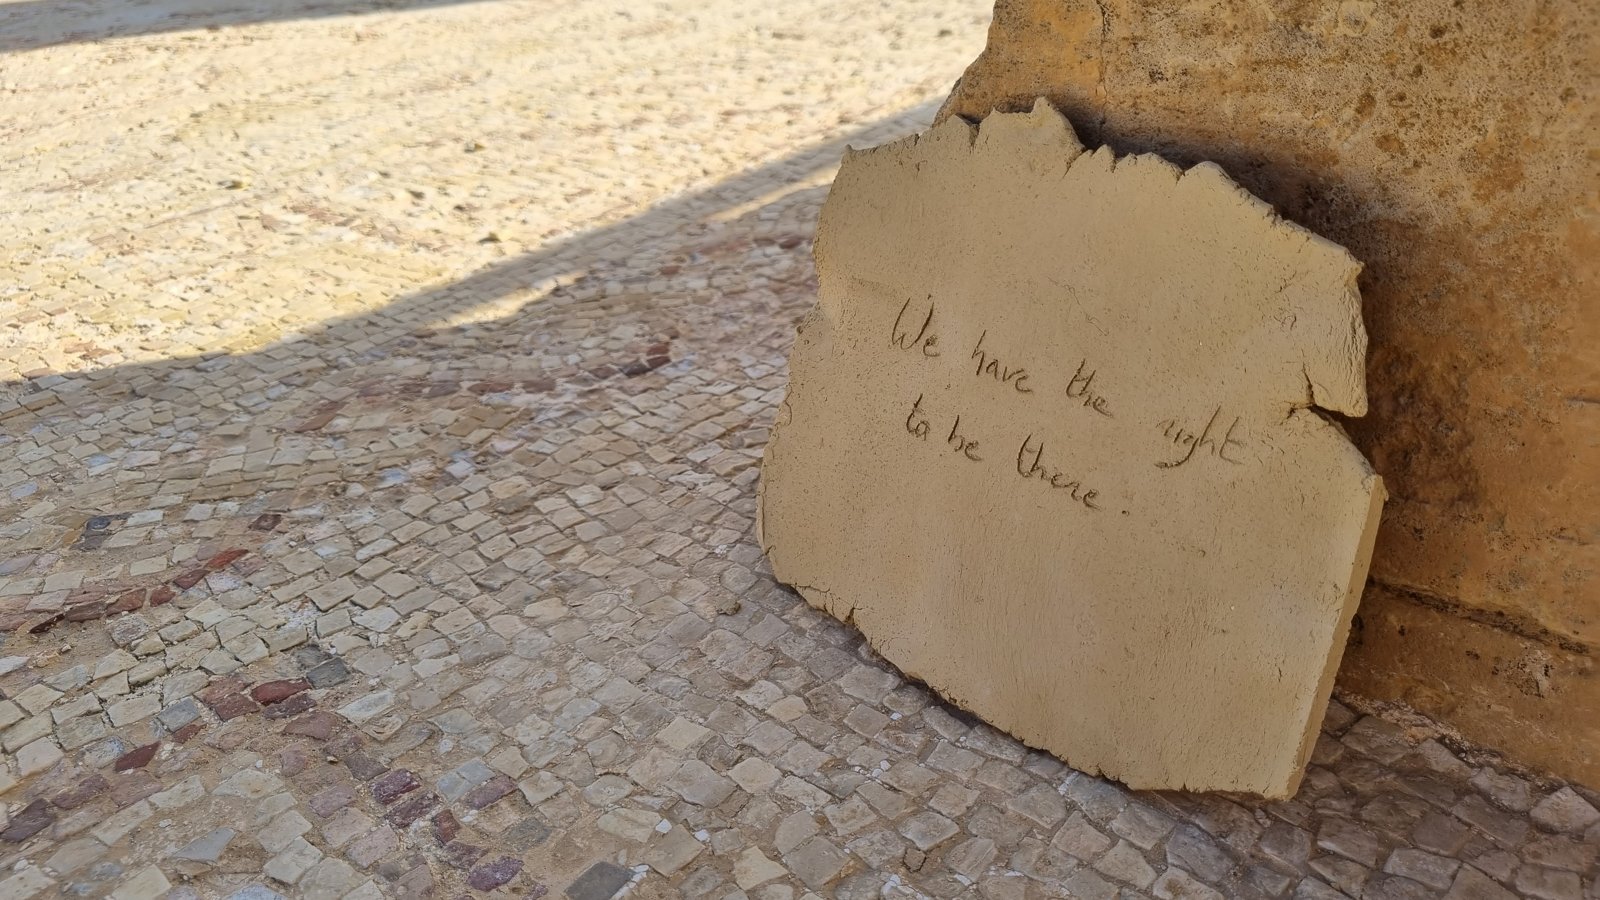 We have the right
to be there.